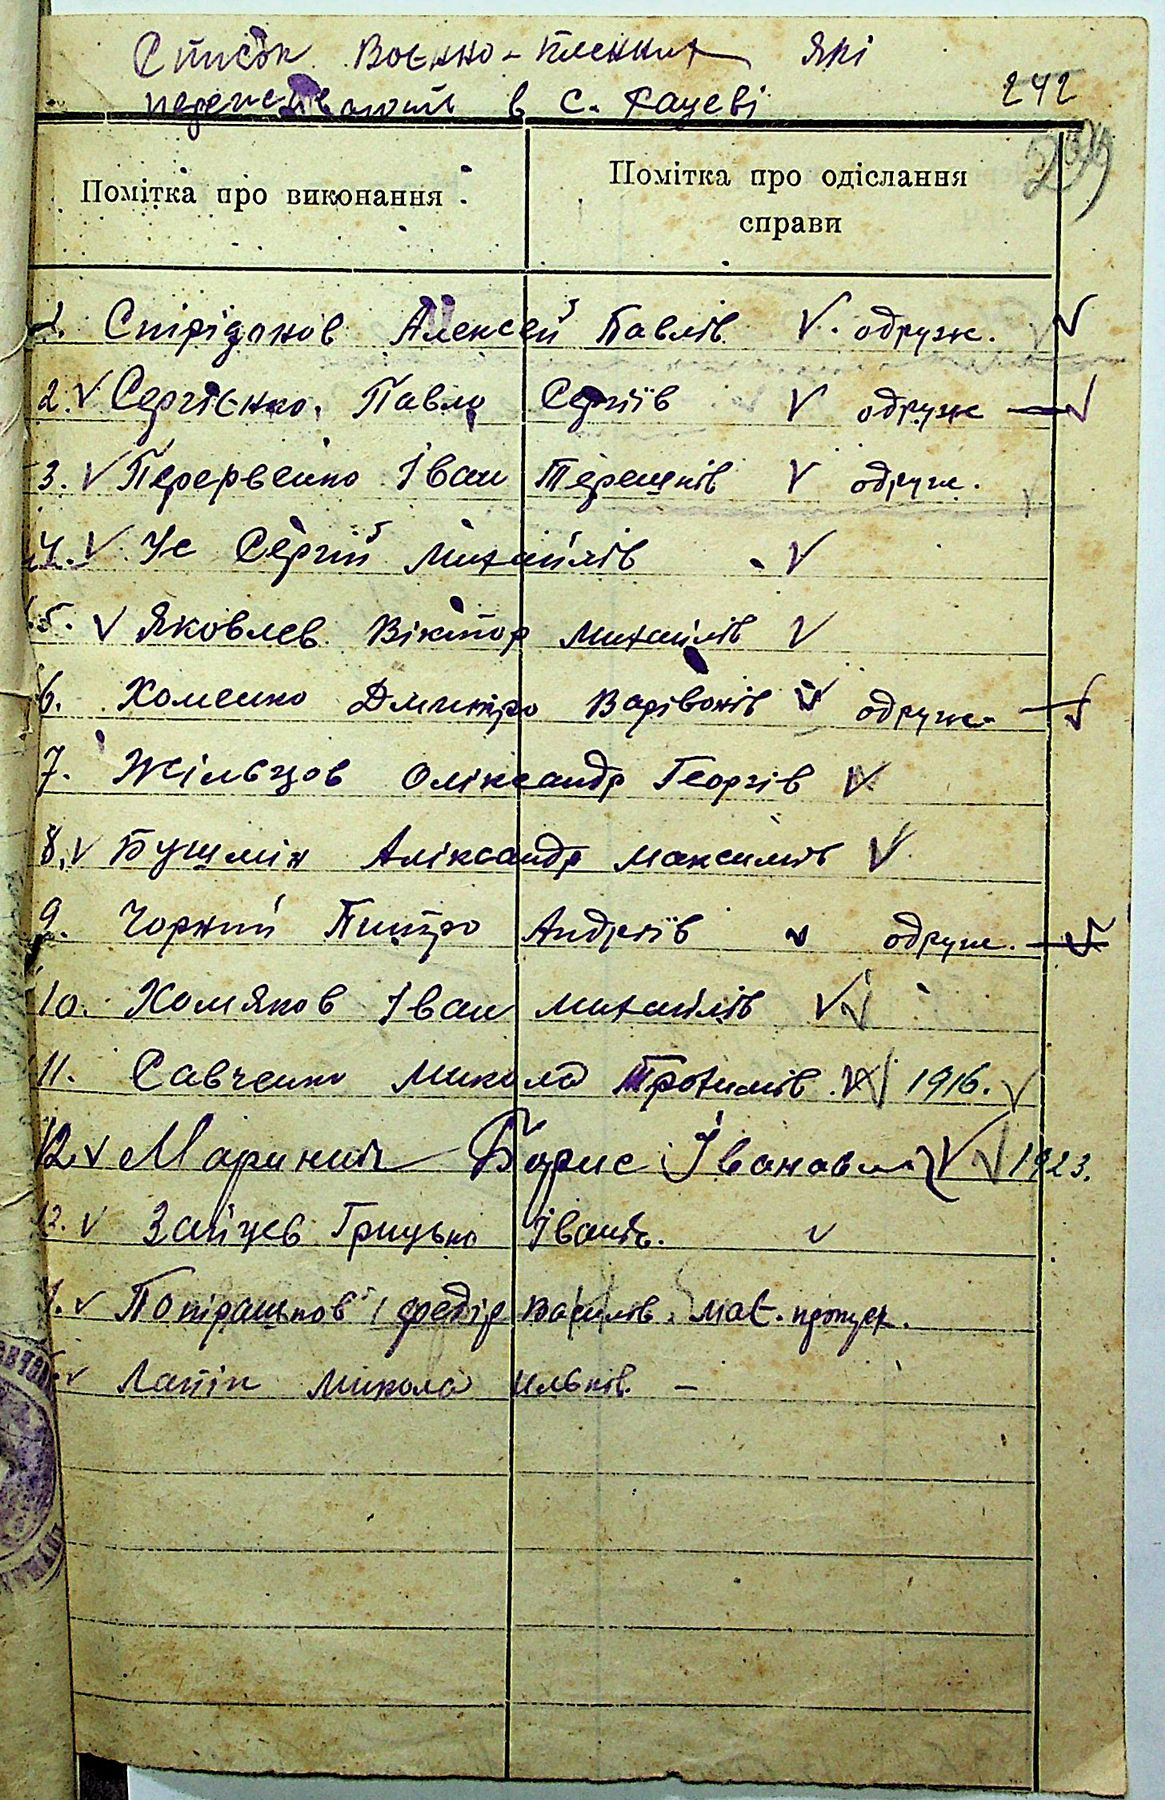 Список Воєнно-пленних які
в с. Рацеві 242
Помітка про виконання
Помітка про одіслання справи
1. Спірідонов Алексей Павлів V. одруж. V
2. V Сергієнко Павло Сергіїв V одруж — V
3. V Перервенко Іван Терешків V одруж.
4. V Ус Сергій Михайлів V
5. V Яковлев Віктор Михайлів V
6. Хоменко Дмитро Варівонів V одруж. V
7. Жільцов Оліксандр Георгів V
8. V Бушмін Аліксандр Максимів V
9. Чорний Питро Андріїв V одруж. V
10. Хомяков Іван Михайлів V V
11. Савченко Микола Трохимів V 1916. V
12 V Маринич Борис V V 1923.
13. V Зайцев Грицько Іванів. V
V Федір Василів. мат. пропуск.
V Лапін Микола Ильків. –